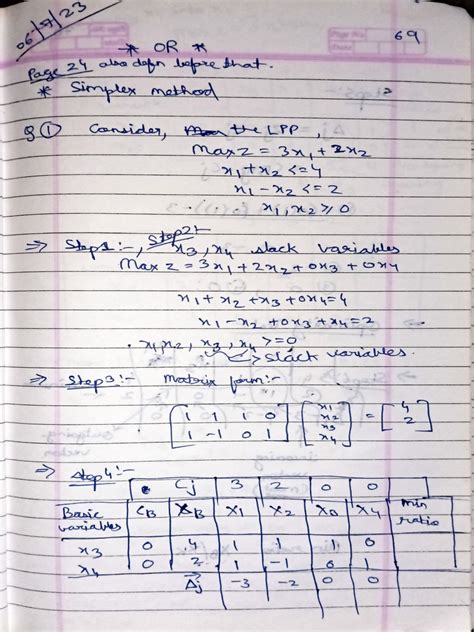 06/7/23
69
* OR *
Page 24 also defn before that.
* Simplex method
Q ① Consider, the LPP,
Max Z = 3x₁ + 2x₂
x₁ + x₂ <= 4
x₁ - x₂ <= 2
x₁, x₂ ≥ 0
⇒ Step1:-, Step2:- x₃, x₄ slack variables
Max Z = 3x₁ + 2x₂ + 0x₃ + 0x₄
x₁ + x₂ + x₃ + 0x₄ = 4
x₁ - x₂ + 0x₃ + x₄ = 2
x₁ x₂, x₃, x₄ >= 0
→ slack variables.
⇒ Step3:- Matrix form:-
[1 1 1 0] [x₁ x₂ x₃ x₄] = [4]
[1 -1 0 1] [2]
⇒ Step4:-
Cj 3 2 0 0
Basic variables CB XB X₁ X₂ X₃ X₄ min ratio
x₃ 0 4 1 1 1 0
x₄ 0 2 1 -1 0 1
Δj -3 -2 0 0